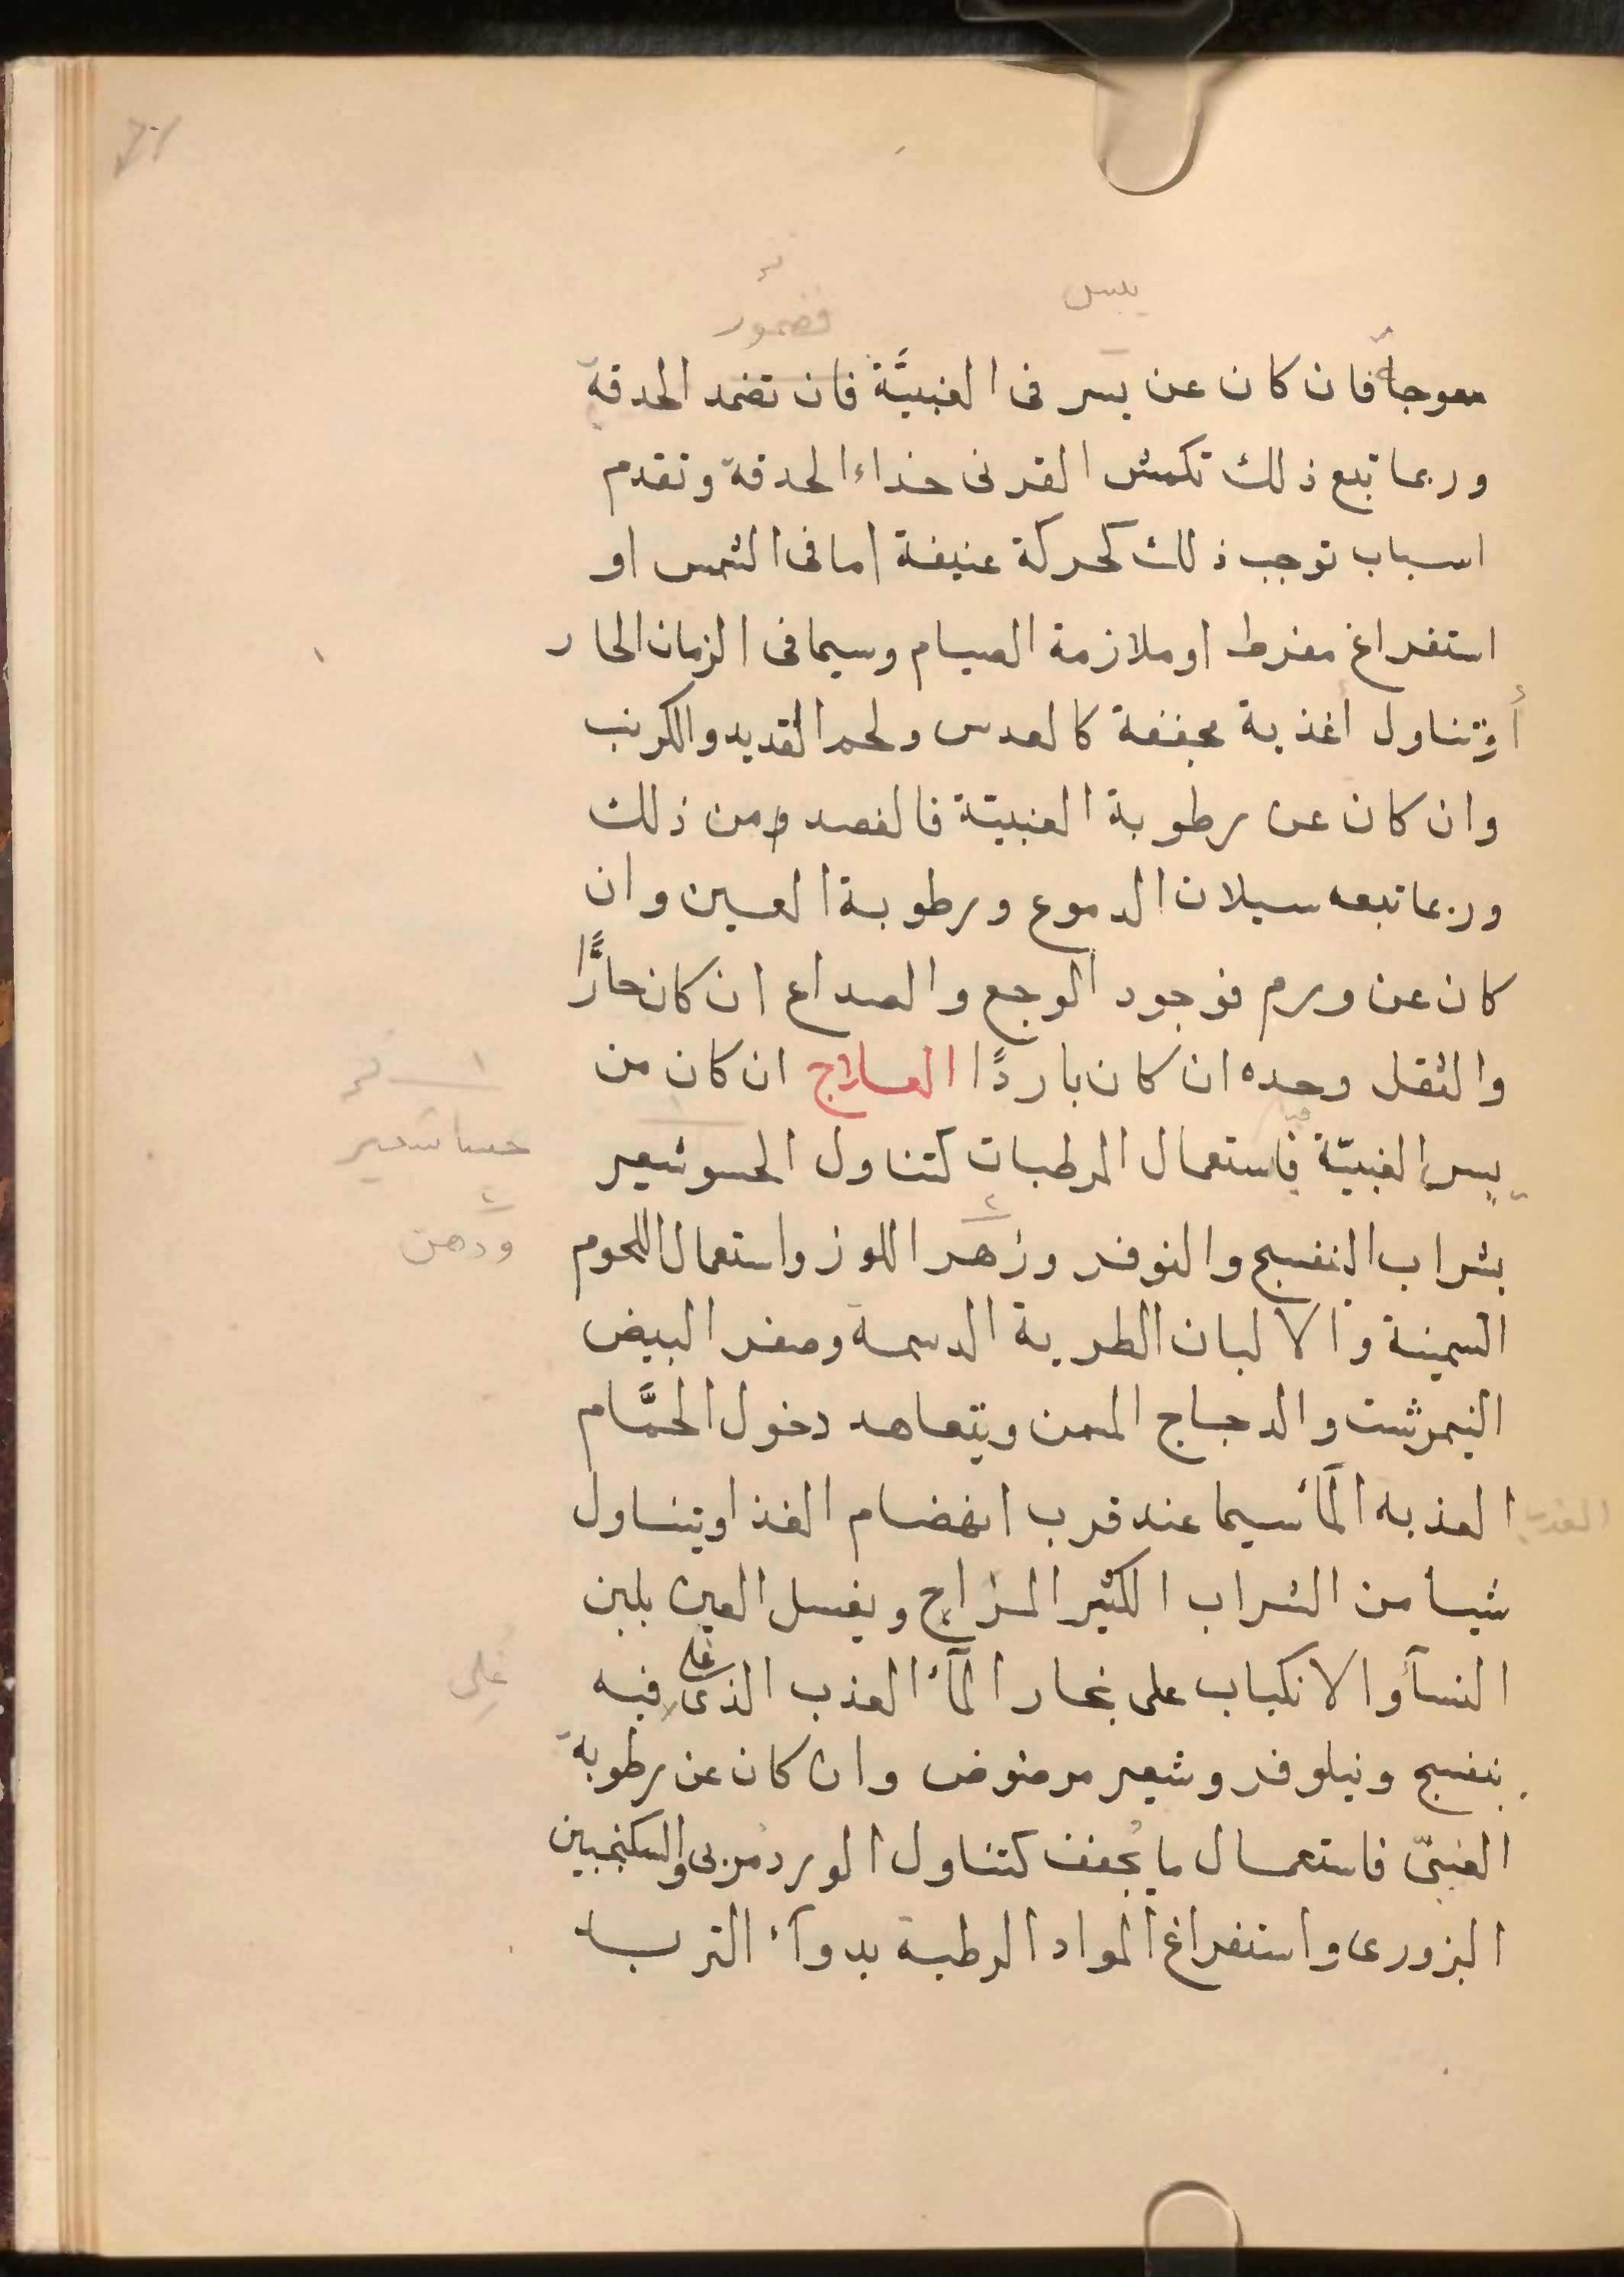 يبس
فضمور
معوجاً فان كان عن يبس فى العنبيَّة فان تضمد الحدقة
وربما تبع ذلك تكمش القرنى حذاء الحدقة وتقدم
اسباب توجب ذلك كحركة عنيفة اما فى الشمس او
استفراغ مفرط او ملازمة الصيام وسيما فى الزمان الحار
أو تناول أغذية مجففة كالعدس ولحم القديد والكرنب
وان كان عن رطوبة العنبيّة فالضد من ذلك
وربما تبعه سيلان الدموع ورطوبة العين وان
كان عن ورم فوجود الوجع والصداع ان كان حارًّا
والثقل وحده ان كان باردًا العلاج ان كان من
يبس العنبيّة فاستعمال المرطبات كتناول الحسو شعير
حسا شعير
بشراب البنفسج والنوفر وزهر اللوز واستعمال اللحوم
ودهن
السمينة والالبان الطرية الدسمة وصفر البيض
النيمرشت والدجاج المسمن ويتعاهد دخول الحمَّام
العذبه المآء سيما عند قرب انهضام الغذا ويتناول
شيا من الشراب الكثير المزاج ويغسل العين بلبن
النسآء والانكباب على بخار المآء العذب الذى غلى فيه
غُلِى
بنفسج ونيلوفر وشعير مرضوض وان كان عن رطوبة
العنبىّ فاستعمال ما يُجفف كتناول الورد مربى والسكنجبين
البزورى واستفراغ المواد الرطبة بدوآء التربد